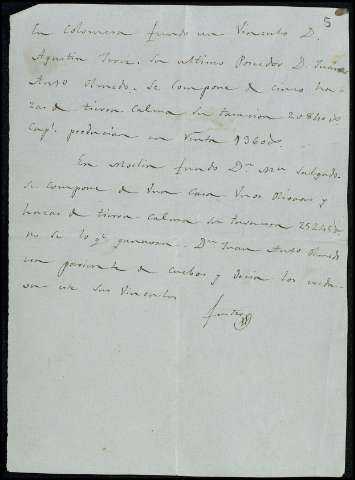 5
En Colomera fundo un Vinculo D.
Agustin su ultimo Poseedor D. Juan
Anto Olmedo. Se compone de cinco ha-
zas de tierra Calma su tasacion 20840 rs.
Capl. producian en Venta 1360 rs.
En Moclin fundo Dn. Mel Salgado.
se compone de Una Casa Unos Olivares y
hazas de tierra calma su tasacion 25245 rs
no se lo q.e ganavan. Dn Juan Anto Olmedo
era pariente de ambos y
de sus Vinculos